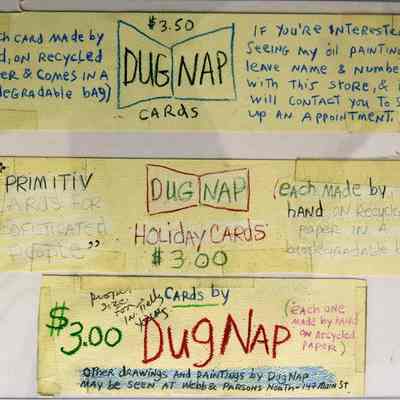 $3.50
ch card made by
d, on recycled
er & comes in a
degradable bag)
DUG NAP
cards
If you're interested
seeing my oil painting
leave name & numbe
with this store, & i
will contact you to s
up an appointment.
"PRIMITIV
CARDS FOR
SOFISTICATED
PEOPLE"
DUG NAP
HOLIDAY CARDS
$3.00
(each made by
hand on recycle
paper in a
biodegradable b
$3.00
cards by
DUG NAP
(each one
made by hand
on recycled
paper)
Other drawings and paintings by Dug Nap
may be seen at Webb & Parsons North - 147 Main St